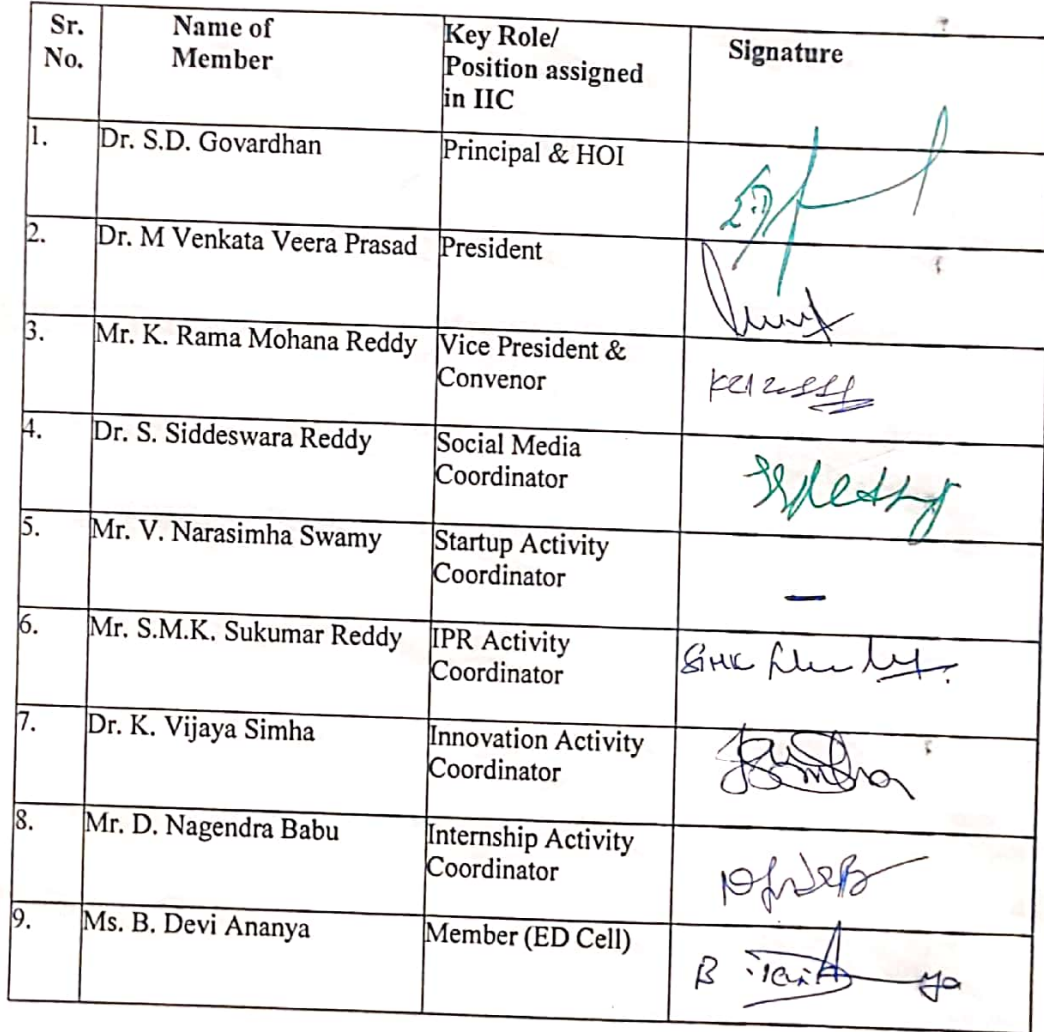 Sr. No.
Name of Member
Key Role/ Position assigned in IIC
Signature
1.
Dr. S.D. Govardhan
Principal & HOI
2.
Dr. M Venkata Veera Prasad
President
3.
Mr. K. Rama Mohana Reddy
Vice President &
Convenor
4.
Dr. S. Siddeswara Reddy
Social Media
Coordinator
5.
Mr. V. Narasimha Swamy
Startup Activity
Coordinator
–
6.
Mr. S.M.K. Sukumar Reddy
IPR Activity
Coordinator
SMK
7.
Dr. K. Vijaya Simha
Innovation Activity
Coordinator
8.
Mr. D. Nagendra Babu
Internship Activity
Coordinator
9.
Ms. B. Devi Ananya
Member (ED Cell)
B